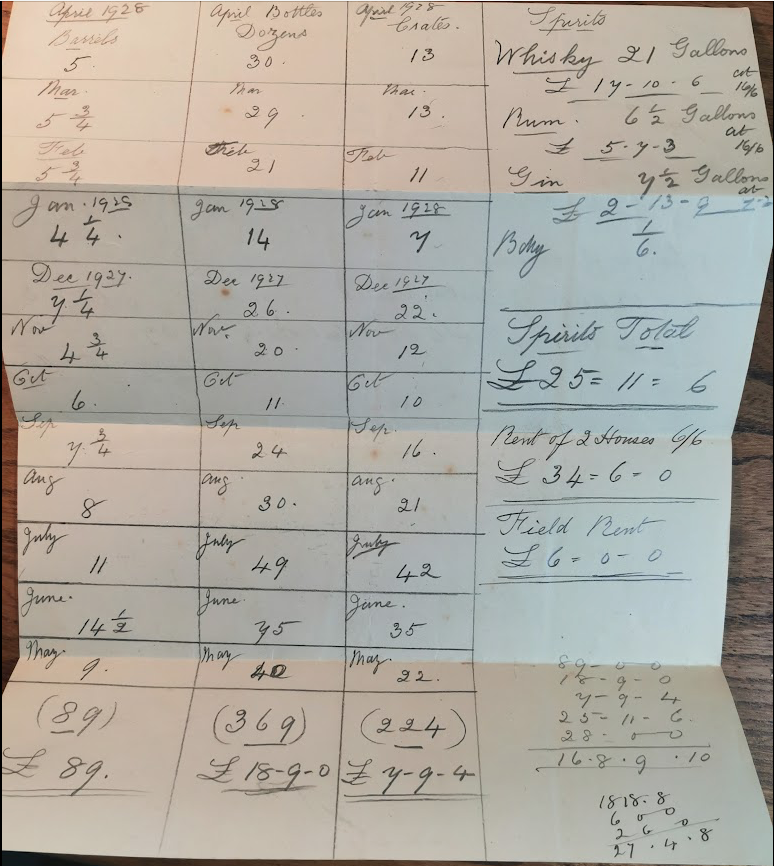 April 1928
Barrels
5.
Mar.
5 3/4
Feb
5 3/4
Jan. 1928
4 1/4.
Dec 1927.
7 1/4
Nov
4 3/4
Oct
6.
Sep
7 3/4
Aug
8
July
11
June.
14 1/2
May.
9.
(89)
£ 89.
April Bottles
Dozens
30.
Mar
29
Feb
21
Jan 1928
14
Dec 1927
26.
Nov.
20.
Oct
11.
Sep
24
Aug.
30.
July
49
June.
75
May
40
(369)
£ 18-9-0
April 1928
Crates.
13
Mar.
13.
Feb
11
Jan 1928
7
Dec 1927
22.
Nov
12
Oct
10
Sep.
16.
Aug.
21
July
42
June.
35
May
22.
(224)
£ 7-9-4
Spirits
Whisky 21 Gallons
at
£ 17-10-6 16/6
Rum. 6 1/2 Gallons
at
£ 5-7-3 16/6
Gin 7 1/2 Gallons
at
£ 2-13-9
1
6.
Spirits Total
£ 25=11=6
Rent of 2 Houses 6/6
£ 34=6-0
Field Rent
£ 6=0-0
89-0-0
18-9-0
7-9-4
25-11-6.
28-0-0
16.8.9.10
1818.8
6 0 0
2 6 0
27.4.8